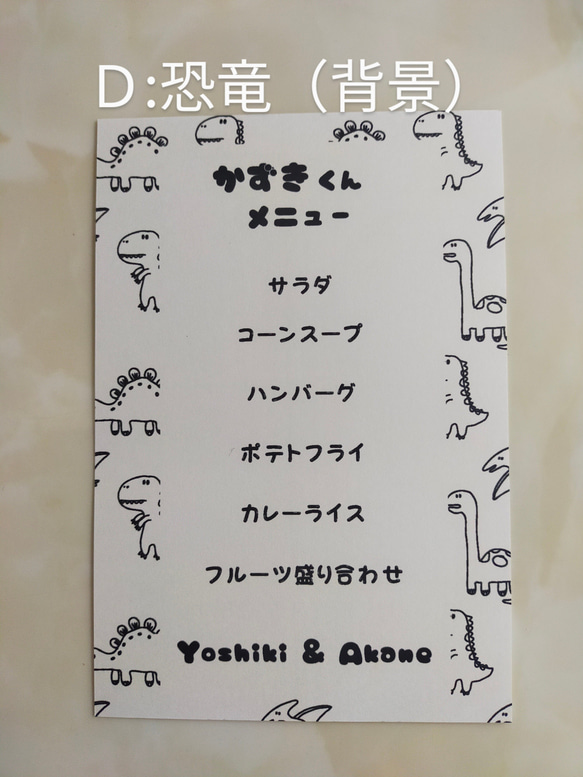 D:恐竜（背景）
かずきくん
メニュー
サラダ
コーンスープ
ハンバーグ
ポテトフライ
カレーライス
フルーツ盛り合わせ
Yoshiki & Akane